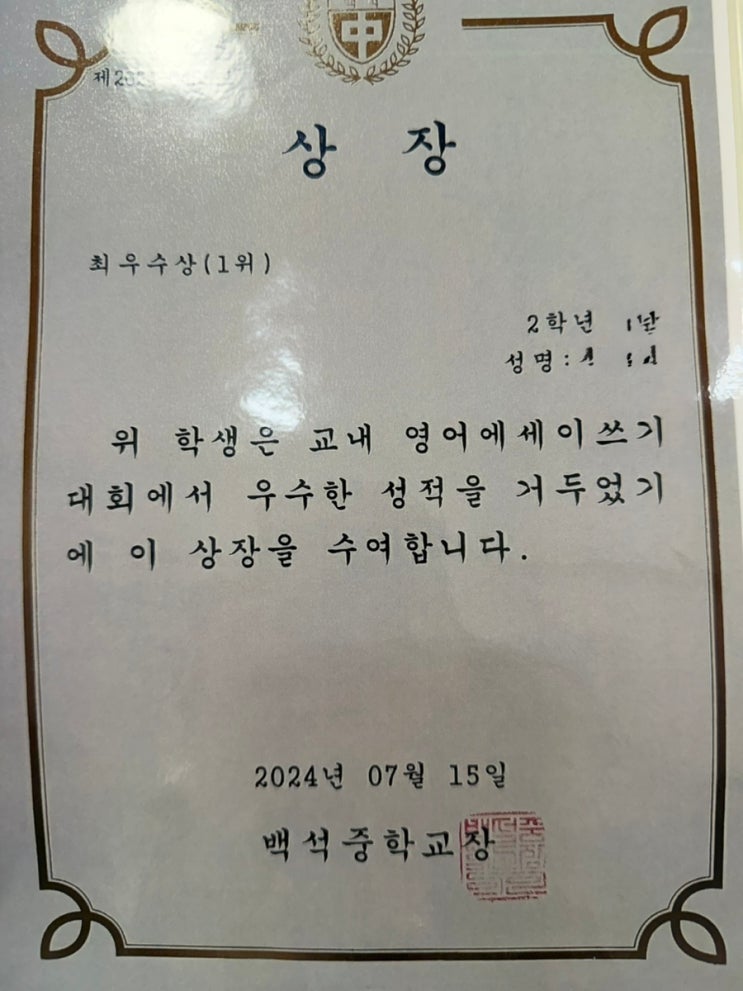 中
상 장
최우수상(1위)
2학년
성명:
위 학생은 교내 영어에세이쓰기
대회에서 우수한 성적을 거두었기
에 이 상장을 수여합니다.
2024년 07월 15일
백석중학교장